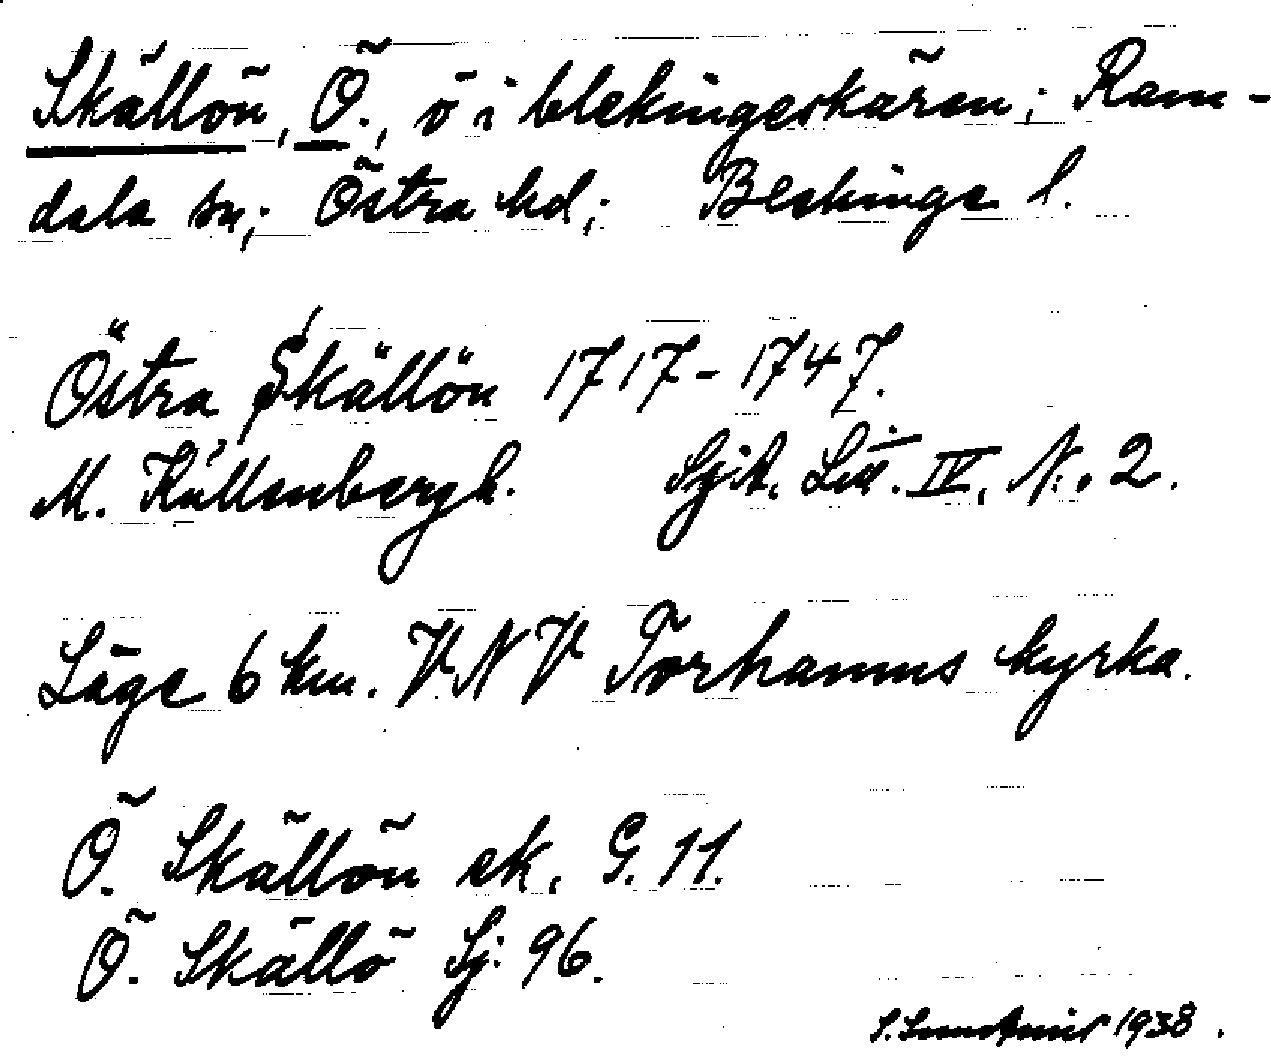 Skällön, Ö., ö i blekingeskären; Ram-
dala sn; Östra hd; Blekinge l.
Östra Skällön 1717-1747.
M. Källenbergh. Sjök. Litt. IV. N:o 2.
Läge 6 km. VNV Torhamns kyrka.
Ö. Skällön ek. G. 11.
Ö. Skällö Sj. 96.
1938.